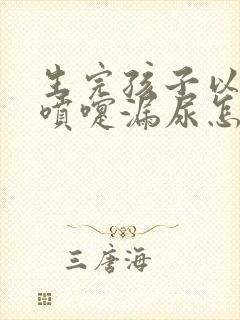 生完孩子以
喷嚏漏尿怎
三唐海